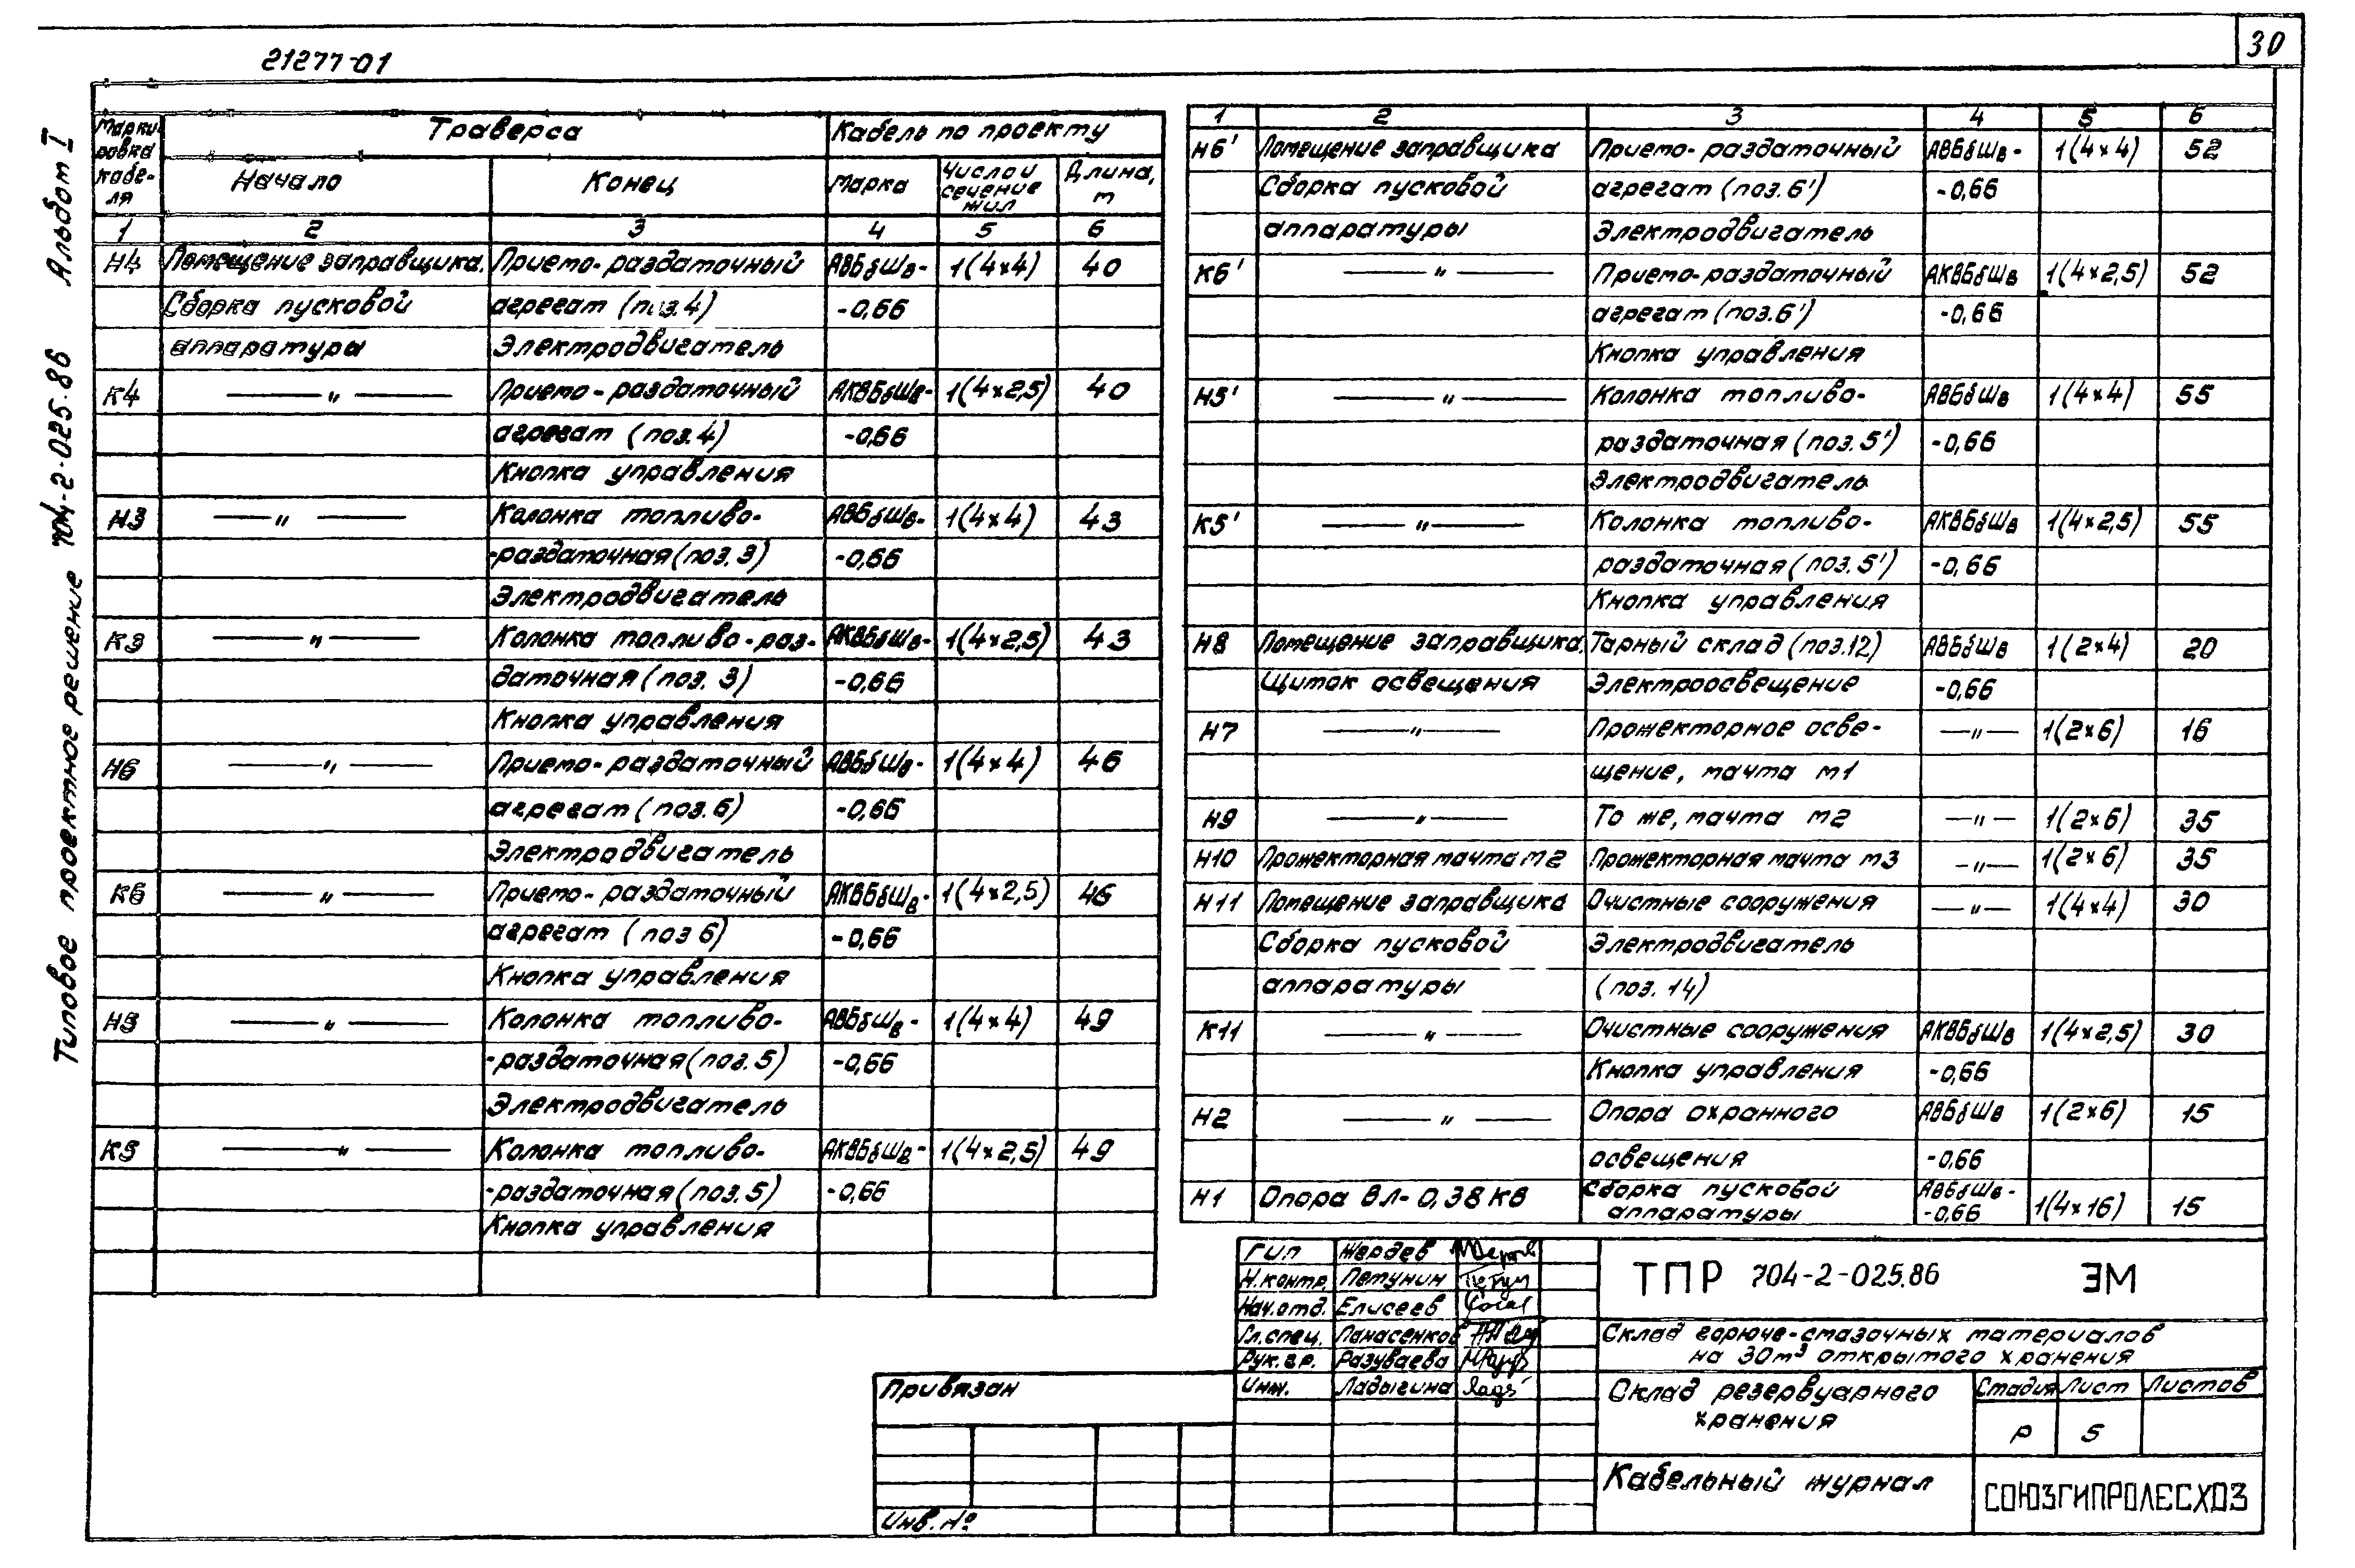 30
21277-01
Типовое проектное решение 704-2-025.86 Альбом I
Марки-
ровка
кабе-
ля
Траверса
Кабель по проекту
Начало
Конец
Марка
Число и
сечение
жил
Длина,
м
1 2 3 4 5 6
Н4 Помещение заправщика. Приемо-раздаточный АВБбШв- 1(4×4) 40
Сборка пусковой агрегат (поз.4) -0,66
аппаратуры Электродвигатель
К4 —"— Приемо-раздаточный АКВБбШв- 1(4×2,5) 40
агрегат (поз.4) -0,66
Кнопка управления
Н3 —"— Колонка топливо- АВБбШв- 1(4×4) 43
-раздаточная (поз. 3) -0,66
Электродвигатель
К3 —"— Колонка топливо-раз- АКВБбШв- 1(4×2,5) 43
даточная (поз. 3) -0,66
Кнопка управления
Н6 —"— Приемо-раздаточный АВБбШв- 1(4×4) 46
агрегат (поз. 6) -0,66
Электродвигатель
К6 —"— Приемо-раздаточный АКВБбШв- 1(4×2,5) 46
агрегат (поз 6) -0,66
Кнопка управления
Н5 —"— Колонка топливо- АВБбШв- 1(4×4) 49
-раздаточная (поз. 5) -0,66
Электродвигатель
К5 —"— Колонка топливо- АКВБбШв- 1(4×2,5) 49
-раздаточная (поз. 5) -0,66
Кнопка управления
1 2 3 4 5 6
Н6' Помещение заправщика Приемо-раздаточный АВБбШв- 1(4×4) 52
Сборка пусковой агрегат (поз. 6') -0,66
аппаратуры Электродвигатель
К6' —"— Приемо-раздаточный АКВБбШв 1(4×2,5) 52
агрегат (поз. 6') -0,66
Кнопка управления
Н5' —"— Колонка топливо- АВБбШв 1(4×4) 55
раздаточная (поз. 5') -0,66
Электродвигатель
К5' —"— Колонка топливо- АКВБбШв 1(4×2,5) 55
раздаточная (поз. 5') -0,66
Кнопка управления
Н8 Помещение заправщика. Тарный склад (поз.12) АВБбШв 1(2×4) 20
Щиток освещения Электроосвещение -0,66
Н7 —"— Прожекторное осве- —"— 1(2×6) 16
щение, мачта М1
Н9 —"— То же, мачта М2 —"— 1(2×6) 35
Н10 Прожекторная мачта М2 Прожекторная мачта М3 —"— 1(2×6) 35
Н11 Помещение заправщика Очистные сооружения —"— 1(4×4) 30
Сборка пусковой Электродвигатель
аппаратуры (поз. 14)
К11 —"— Очистные сооружения АКВБбШв 1(4×2,5) 30
Кнопка управления -0,66
Н2 —"— Опора охранного АВБбШв 1(2×6) 15
освещения -0,66
Н1 Опора ВЛ-0,38 КВ Сборка пусковой АВБбШв- 1(4×16) 15
аппаратуры -0,66
ГИП Жердев
Н.контр. Петунин
Нач.отд. Елисеев
Гл.спец. Панасенков
Рук.гр. Разуваева
Инж. Ладыгина
ТПР 704-2-025.86 ЭМ
Склад горюче-смазочных материалов
на 30 м³ открытого хранения
Склад резервуарного
хранения
Стадия Лист Листов
Р 5
Кабельный журнал
СОЮЗГИПРОЛЕСХОЗ
Привязан
Инв. №